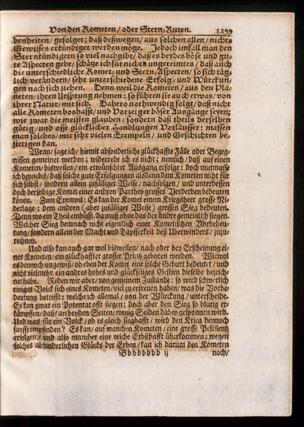 Von den Kometen / oder Stern-Ruten. 1299
benheiten / gefolget; daß deßwegen / aus solchen allen / nichts
Gewisses erkündiget werden möge. Jedoch muß man den
Sternkündigern so viel nachgeben / daß es bey böse und gu-
te Aspecten gebe; schätze ichs für nicht ungereimtes / daß auch
die unterschiedliche Komet- und Stern-Aspecten / so sich täg-
lich verändern / unterschiedliche Erfolg- und Würckun-
gen nach sich ziehen. Denn weil die Kometen / aus den Pla-
neten / ihren Ursprung nehmen: so führen sie auch etwas / von
ihrer Natur / mit sich. Dahero nothwendig folgt / daß nicht
alle Kometen boshafft / und Vorzeiger böser Ausgänge seyen;
wie zwar die meisten glauben: sondern daß theils derselben
gütig / und offt glücklicher Handlungen Vorläuffer: massen
man solches / mit sehr vielen Exempeln / und Geschichten be-
stetigen kan.
Wenn / sage ich / hiemit absonderliche glückhaffte Fälle oder Bege-
nissen gemeinet werden; widerrede ich es nicht: nemlich / daß auf einen
Kometen / bißweilen / ein erwünschter Ausgang erfolge: doch muthmasse
ich benebst / daß solche gute Erfolgungen aus dem Kometen nicht für
sich selbst / sondern allein zufälliger Weise / nachfolgen / und unterdessen
ein derselbige Komet einer andren Parthey grosses Verderben bedeuten
könne. Zum Exempel: Es kan der Komet einem Kriegsheer grosse Ni-
derlage; dem andren (aber zufälliger Weise) grossen Sieg bedeuten.
Denn wo ein Theil einbüßt / da muß ohne das der andre gemeinlich siegen.
Welcher Sieg dennoch nicht eigentlich einer Kometischen Vorbedeu-
tung / sondern allein der Macht und Tapfferkeit deß Uberwinders / zuzu-
rechnen.
Und also kan auch gar wol bißweilen / nach oder bey Erscheinung ei-
nes Kometen / ein glückhaffter grosser Printz geboren werden. Wiewol
dennoch ungewiß / ob eben der Komet eine solche Geburt bedeutet / und
nicht vielmehr ein andres hohes und glückseliges Gestirn dieselbe bezeich-
net habe. Reden wir aber / von gemeinem Zustande; so wird schwerlich
einiges Volck sich eines Kometen / viel zu erfreuen haben / was die Vorbe-
deutung betrifft: welche ich allemal / von der Würckung / unterscheide.
Es kan zwar ein Potentat offt siegen; doch aber den Sieg so blutig er-
kämpffen / daß / an beyden Seiten / wenig Seiden dabey gesponnen wird.
Und was für ein Volck / ob es gleich sieghafft / wird den Krieg dennoch
sanfft empfinden? Es kan / auf manchen Kometen / eine grosse Pestilentz
erfolgen / und also mancher eine reiche Erbschafft überkommen; wegen
solches absonderlichen Glücks der Erben / kan ich darum den Kometen
Bbbbbbbb ij noch /